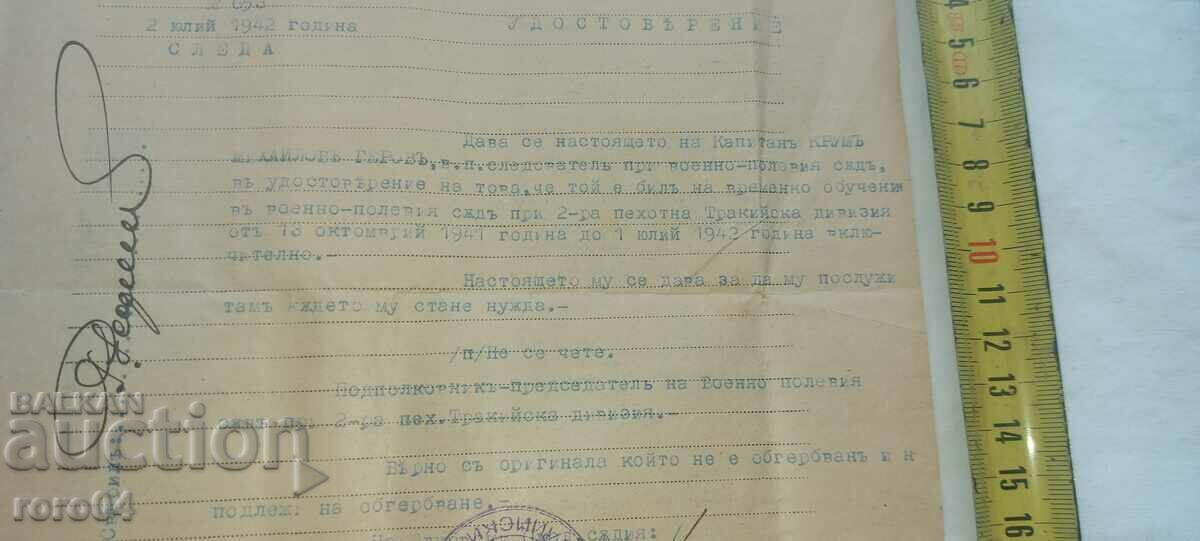 2 юлий 1942 година
УДОСТОВѢРЕНИЕ
СЛЕДА
Дава се настоящето на Капитанъ КРУМЪ
МИХАЙЛОВЪ ГЕРОВЪ, в.п.следователь при военно-полевия сѫдъ,
въ удостовѣрение на това, че той е билъ на временно обучени
въ военно-полевия сѫдъ при 2-ра пехотна Тракийска дивизия
отъ 13 октомврий 1941 година до 1 юлий 1942 година вклю-
чително.-
Настоящето му се дава за да му послужи
тамъ кѫдето му стане нужда.-
/п/Не се чете.
Подполковникъ-председатель на Военно полевия
сѫдъ при 2-ра пех.Тракийска дивизия.-
Вѣрно съ оригинала който не е обгербванъ и н
подлежи на обгербване.-
сѫдия:
БАЛКАН
auction
roro04
4 5 6 7 8 9 10 11 12 13 14 15 16